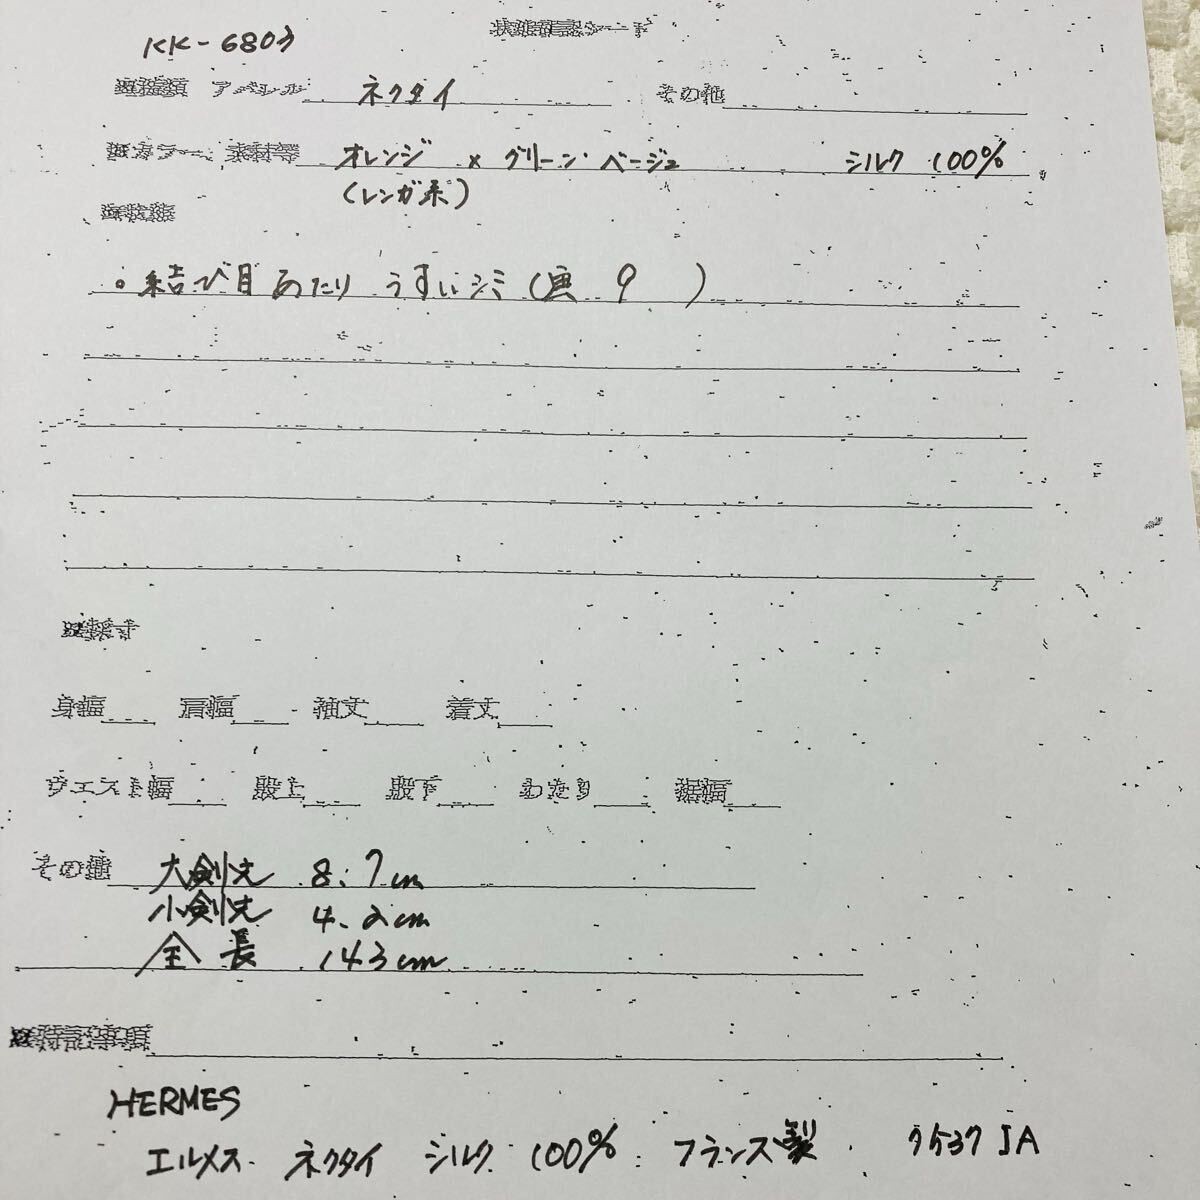 状態確認シート
KK-6803
アパレル ネクタイ その他
カラー、素材等 オレンジ × グリーン・ベージュ シルク 100%
(レンガ系)
○ 結び目あたり うすいシミ (画 9 )
採寸
身幅 肩幅 袖丈 着丈
ウエスト幅 股上 股下 わたり 裾幅
その他 大剣先 8.7cm
小剣先 4.2cm
全長 143cm
特記事項
HERMES
エルメス ネクタイ シルク 100% フランス製